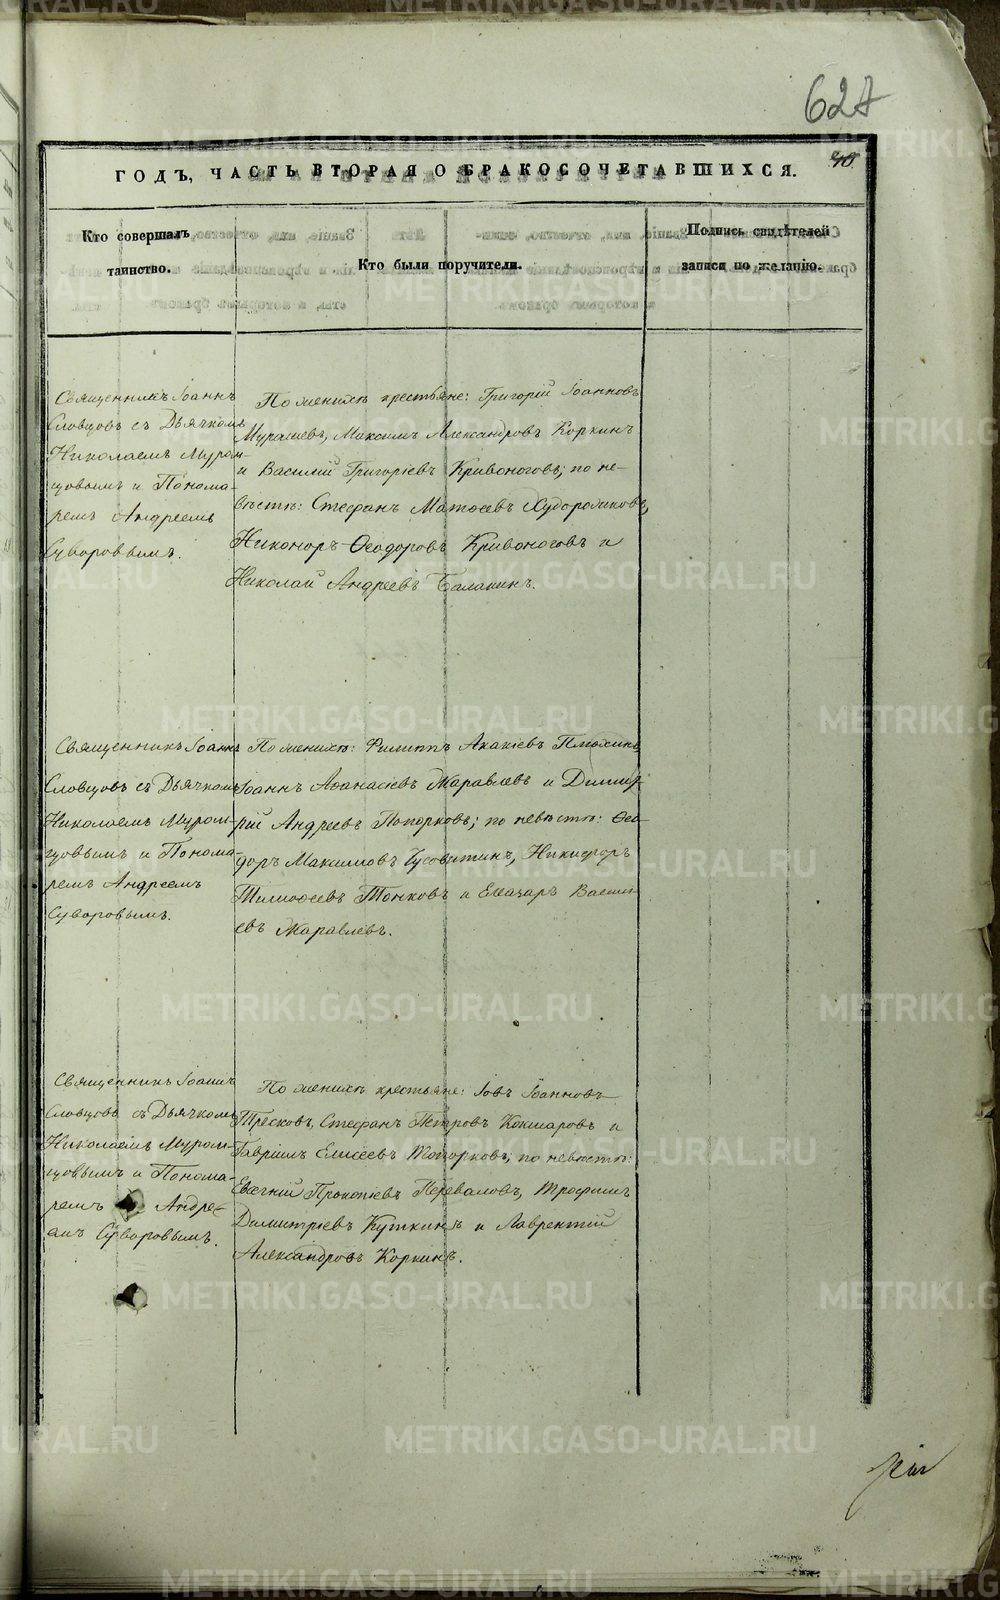 627
40
ГОДЪ, ЧАСТЬ ВТОРАЯ О БРАКОСОЧЕТАВШИХСЯ.
Кто совершалъ
таинство.
Кто были поручители.
Подпись свидѣтелей
записи по желанію.
Священникъ Іоаннъ
Словцовъ съ Дьячкомъ
Николаемъ Муром-
цовымъ и Понома-
ремъ Андреемъ
Суворовымъ.
По женихѣ крестьяне: Григорій Іоанновъ
Мурашевъ, Максимъ Александровъ Коркинъ
и Василій Григоріевъ Кривоноговъ; по не-
вѣстѣ: Стефанъ Матѳеевъ Худорожковъ,
Никоноръ Ѳеодоровъ Кривоноговъ и
Николай Андреевъ Балакинъ.
Священникъ Іоаннъ
Словцовъ съ Дьячкомъ
Николаемъ Муром-
цовымъ и Понома-
ремъ Андреемъ
Суворовымъ.
По женихѣ: Филиппъ Акакіевъ
Іоаннъ Аѳанасіевъ Жаравлевъ и Димит-
рій Андреевъ Топорковъ; по невѣстѣ: Ѳео-
доръ Максимовъ Чусовитинъ, Никифоръ
Тимоѳеевъ Тонковъ и Елеазаръ Васили-
евъ Жаравлевъ.
Священникъ Іоаннъ
Словцовъ съ Дьячкомъ
Николаемъ Муром-
цовымъ и Понома-
ремъ Андре-
емъ Суворовымъ.
По женихѣ крестьяне: Іовъ Іоанновъ
Тресковъ, Стефанъ Петровъ Кокшаровъ и
Гавріилъ Елисеевъ Топорковъ; по невѣстѣ:
Евгеній Прокопіевъ Переваловъ, Трофимъ
Димитріевъ Куткинъ и Лаврентій
Александровъ Коркинъ.
METRIKI.GASO-URAL.RU